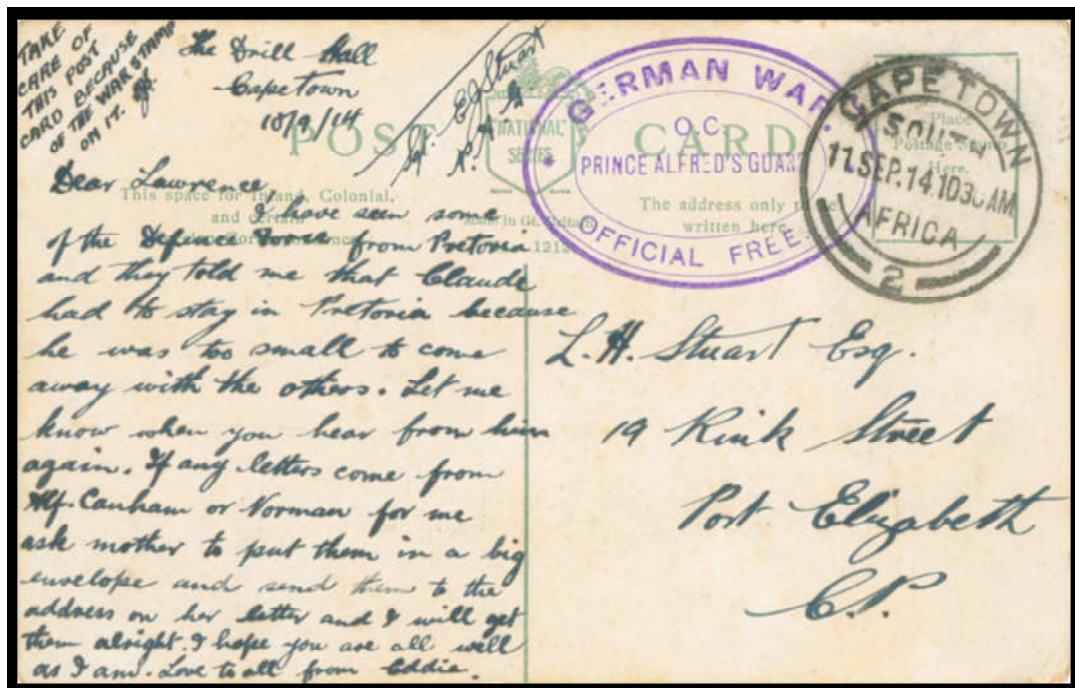 TAKE
CARE OF
THIS POST
CARD BECAUSE
OF THE WAR STAMP
ON IT.
The Drill Hall
Capetown
10/9/14
E J Stuart
POST CARD
"NATIONAL"
SERIES
This space for Inland, Colonial,
and certain
Made in Gt. Britain
1212
The address only to be
written here.
Place
Postage Stamp
Here.
GERMAN WAR.
O.C.
PRINCE ALFRED'S GUARD
OFFICIAL FREE.
CAPE TOWN
SOUTH
11.SEP.14.1030AM
AFRICA
2
Dear Lawrence,
I have seen some
of the Defence Force from Pretoria
and they told me that Claude
had to stay in Pretoria because
he was too small to come
away with the others. Let me
know when you hear from him
again. If any letters come from
Alf. Canham or Norman for me
ask mother to put them in a big
envelope and send them to the
address on her letter and I will get
them alright. I hope you are all well
as I am. Love to all from Eddie.
L. H. Stuart Esq.
19 Rink Street
Port Elizabeth
C.P.